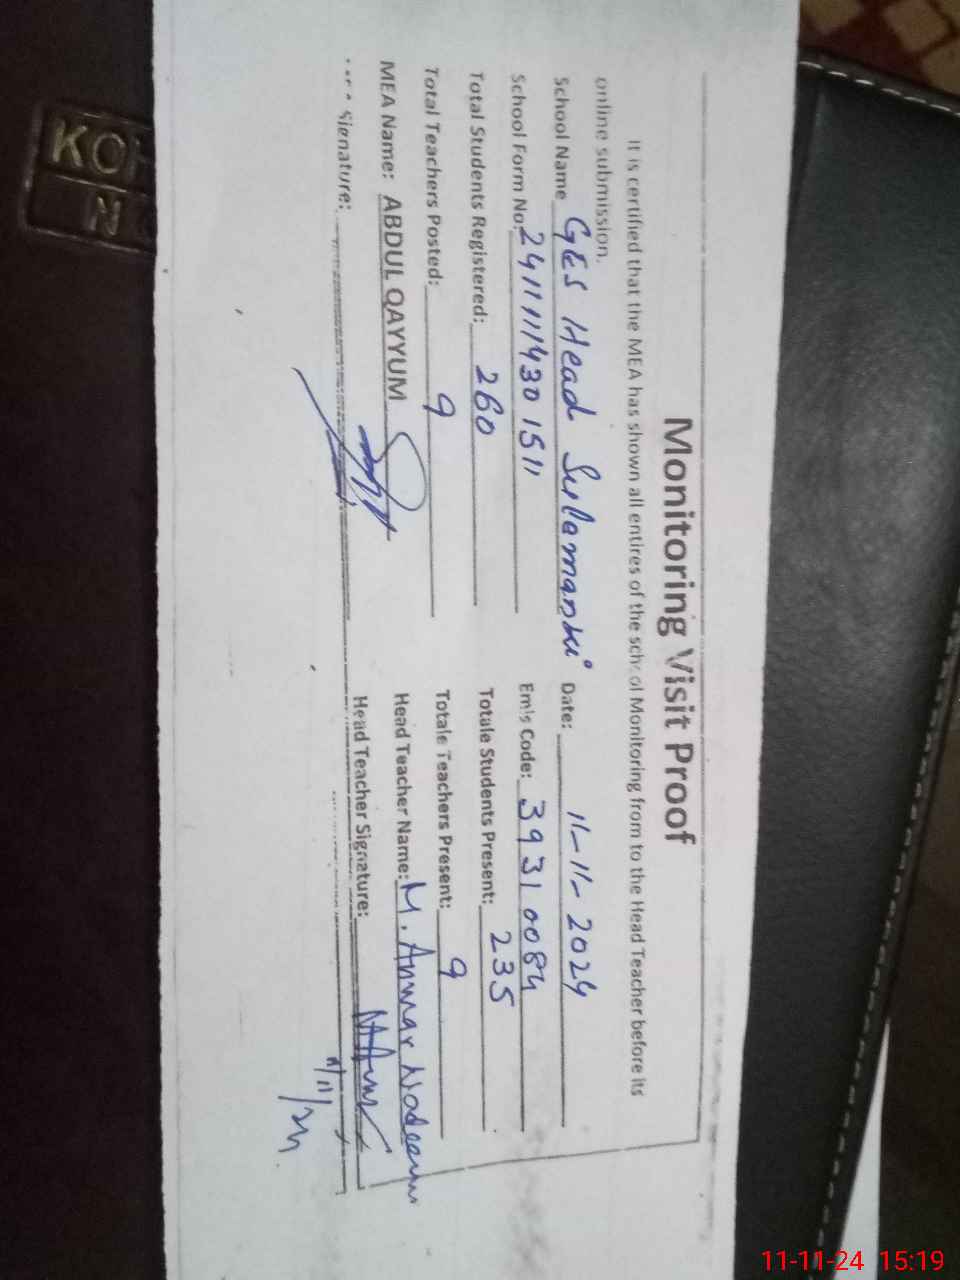 Monitoring Visit Proof
It is certified that the MEA has shown all entires of the school Monitoring from to the Head Teacher before its
online submission.
School Name GES Head Sulamanki Date: 11-11-2024
School Form No: 24111114301511 Emis Code: 39310084
Total Students Registered: 260 Totale Students Present: 235
Total Teachers Posted: 9 Totale Teachers Present: 9
MEA Name: ABDUL QAYYUM Head Teacher Name: M. Ammar Nadeem
Signature: Head Teacher Signature:
11/11/24
KOH
N
11-11-24 15:19